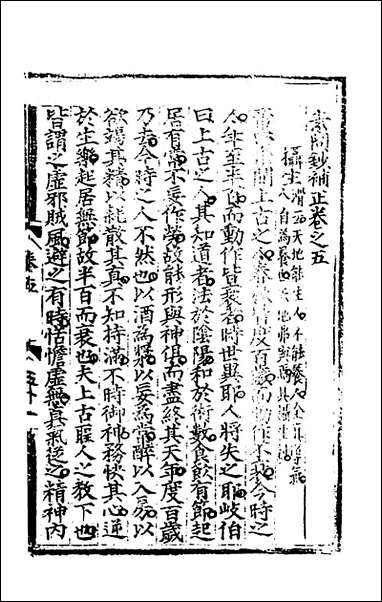 素問鈔補正卷之五
攝生 滑 天地能生人不能養人全
人自爲養
問上古之人春秋 度百歲而動作不 今時之
人年至半百而動作皆衰者時世異耶人將失之耶岐伯
曰上古之人其知道者法於陰陽和於術數食飲有節起
居有常不妄作勞故能形與神俱而盡終其天年度百歲
乃去今時之人不然也以酒爲漿以妄爲常醉以入房以
欲竭其精以耗散其真不知持滿不時御神務快其心逆
於生樂起居無節故半百而衰也夫上古聖人之教下也
皆謂之虛邪賊風避之有時恬憺虛無真氣從之精神內
卷五